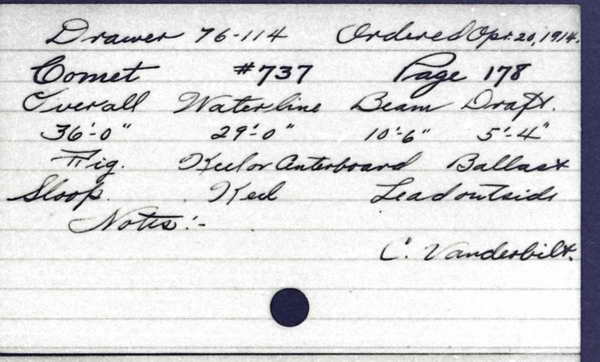 Drawer 76-114 Ordered Apr. 20, 1914.
Comet #737 Page 178
Overall Waterline Beam Draft.
36'-0" 29'-0" 10'-6" 5'-4"
Rig. Keel or Centerboard Ballast
Sloop. Keel Lead outside
Notes:-
C. Vanderbilt.